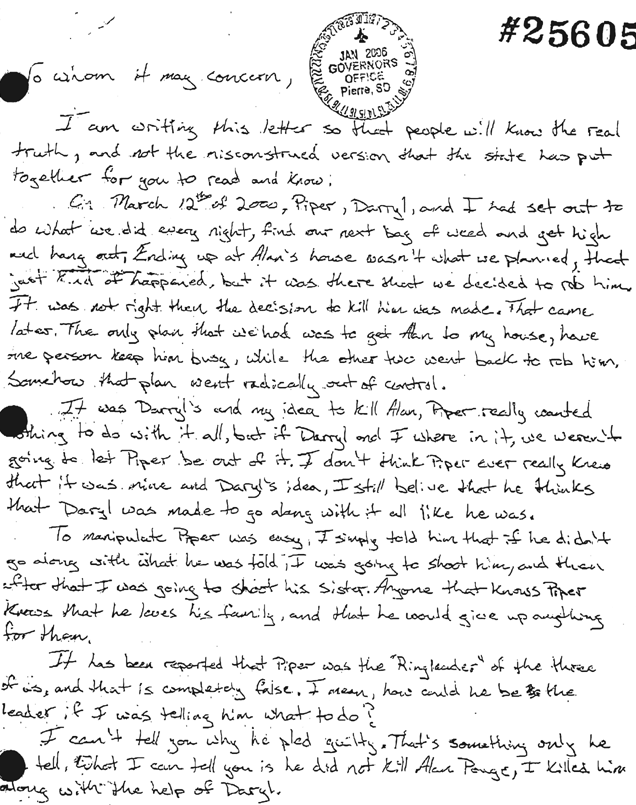 #25605
JAN 2006
GOVERNORS
OFFICE
Pierre, SD
To whom it may concern,
I am writing this letter so that people will know the real
truth, and not the misconstrued version that the state has put
together for you to read and know.
On March 12th of 2000, Piper, Darryl, and I had set out to
do what we did every night, find our next bag of weed and get high
and hang out. Ending up at Alan's house wasn't what we planned, that
just kind of happened, but it was there that we decided to rob him.
It was not right then the decision to kill him was made. That came
later. The only plan that we had was to get Alan to my house, have
one person keep him busy, while the other two went back to rob him.
Somehow that plan went radically out of control.
It was Darryl's and my idea to kill Alan, Piper really wanted
nothing to do with it all, but if Darryl and I where in it, we weren't
going to let Piper be out of it. I don't think Piper ever really knew
that it was mine and Daryl's idea, I still belive that he thinks
that Daryl was made to go along with it all like he was.
To manipulate Piper was easy, I simply told him that if he didn't
go along with what he was told, I was going to shoot him, and then
after that I was going to shoot his sister. Anyone that knows Piper
knows that he loves his family, and that he would give up anything
for them.
It has been reported that Piper was the "Ringleader" of the three
of us, and that is completely false. I mean, how could he be the
leader, if I was telling him what to do?
I can't tell you why he pled guilty. That's something only he
tell, what I can tell you is he did not kill Alan Pouge, I killed him
along with the help of Daryl.